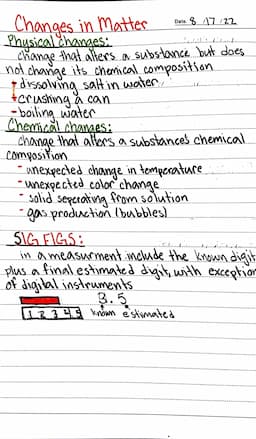 Changes in Matter
Date 8/17/22
Physical changes:
change that alters a substance but does
not change its chemical composition
- dissolving salt in water
- crushing a can
- boiling water
Chemical changes:
change that alters a substances chemical
composition
- unexpected change in temperature
- unexpected color change
- solid seperating from solution
- gas production (bubbles)
SIG FIGS:
in a measurment include the known digit
plus a final estimated digit, with exception
of digital instruments
3.5
1 2 3 4 5 known estimated